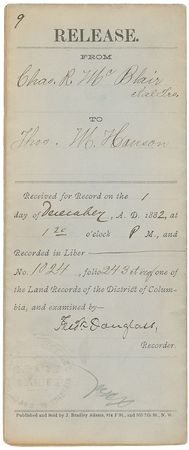 9
RELEASE.
FROM
Chas. R. McBlair
et al Trs.
TO
Thos. M. Hanson
Received for Record on the 1
day of December, A. D. 1882, at
1 20 o'clock P M., and
Recorded in Liber
No. 1024, folio 243 et seq one of
the Land Records of the District of Colum-
bia, and examined by
Fredk Douglass,
Recorder.
Published and Sold by J. Bradley Adams, 814 F St., and 505 7th St., N. W.